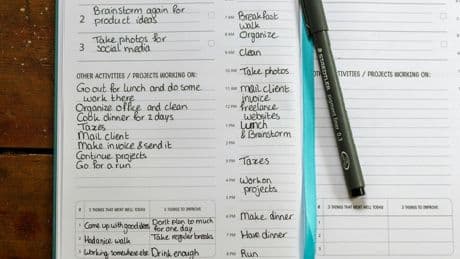 2 Brainstorm again for
product ideas
3 Take photos for
social media
OTHER ACTIVITIES / PROJECTS WORKING ON:
Go out for lunch and do some
work there
Organize office and clean
Cook dinner for 2 days
Taxes
Mail client
Make invoice & send it
Continue projects
Go for a run
# 3 THINGS THAT WENT WELL TODAY 3 THINGS TO IMPROVE
1 Come up with good ideas Don't plan to much
for one day
2 Had a nice walk Take regular breaks
3 Working somewhere else Drink enough
7 AM Breakfast
walk
8 AM Organize
9 AM Clean
10 PM Take photos
11 PM Mail client
invoice
12 PM Freelance
websites
1 PM Lunch
& Brainstorm
2 PM
3 PM Taxes
4 PM Work on
5 PM projects
6 PM Make dinner
7 PM Have dinner
8 PM Run
STAEDTLER
pigment liner 0.3
/ PROJECTS WORKING ON:
# 3 THINGS THAT WENT WELL TODAY 3 THINGS TO IMPROVE
1
2
3